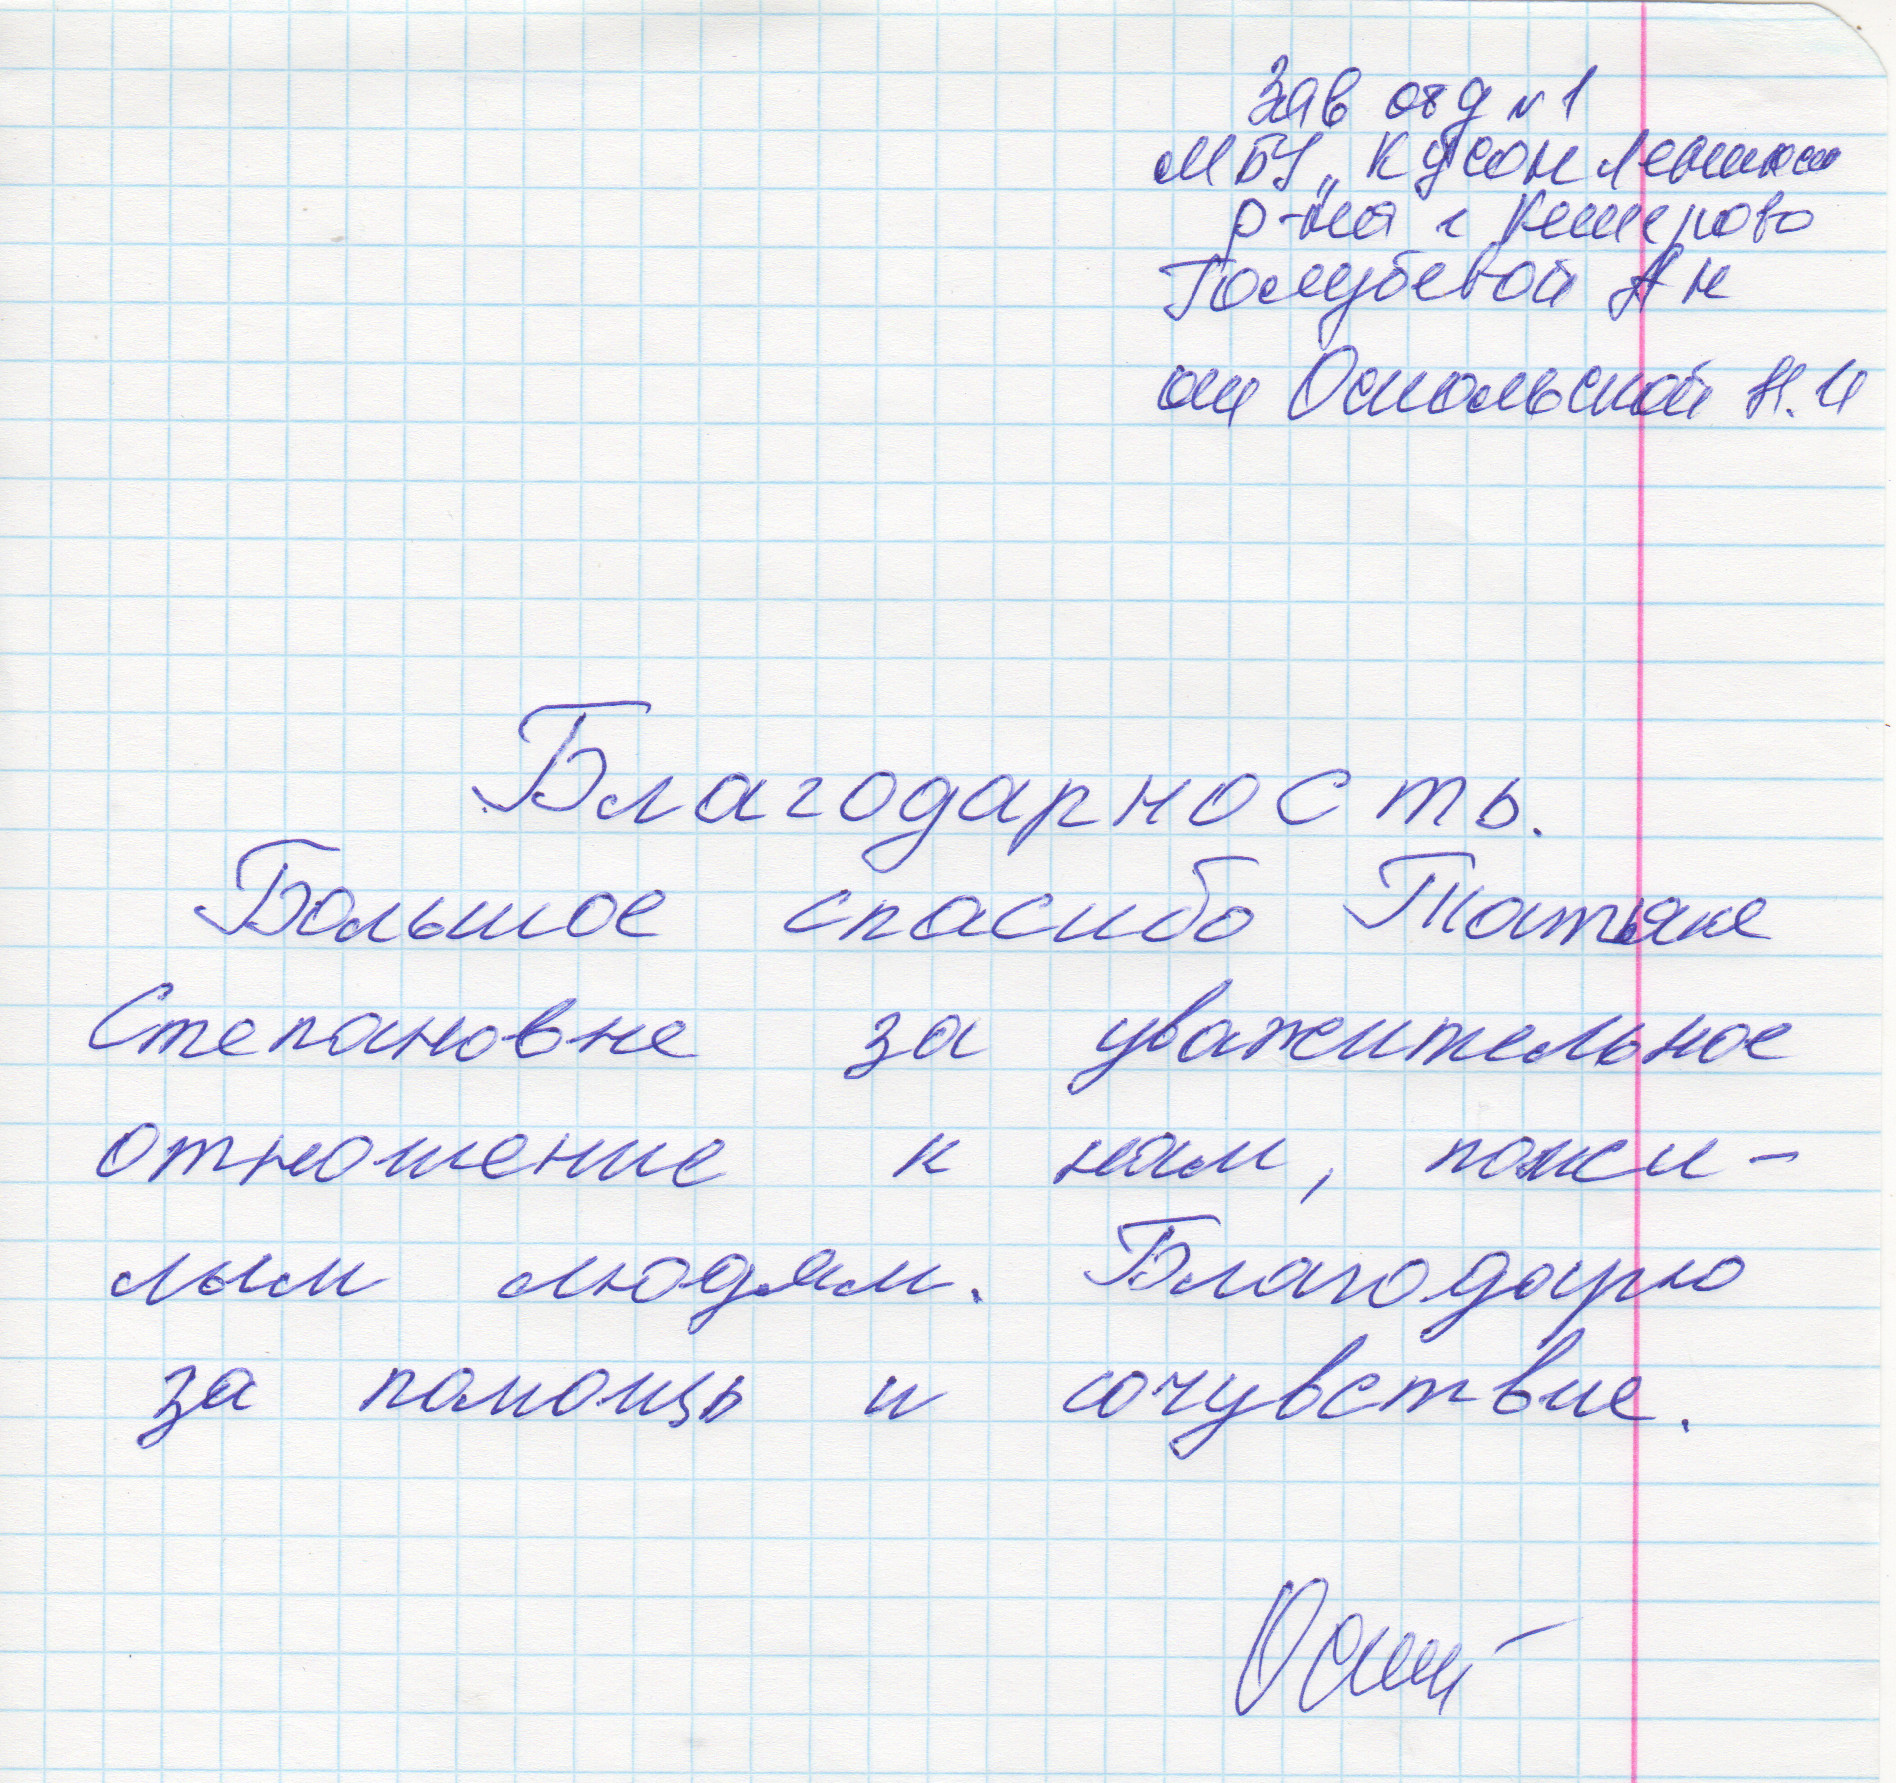 Зав отд №1
МБУ „КЦСОН Ленинск
р-на" г Кемерово
Голубевой А Н
от Оскольской Н.И
Благодарность.
Большое спасибо Татьяне
Степановне за уважительное
отношение к нам, пожи-
лым людям. Благодарю
за помощь и сочувствие.